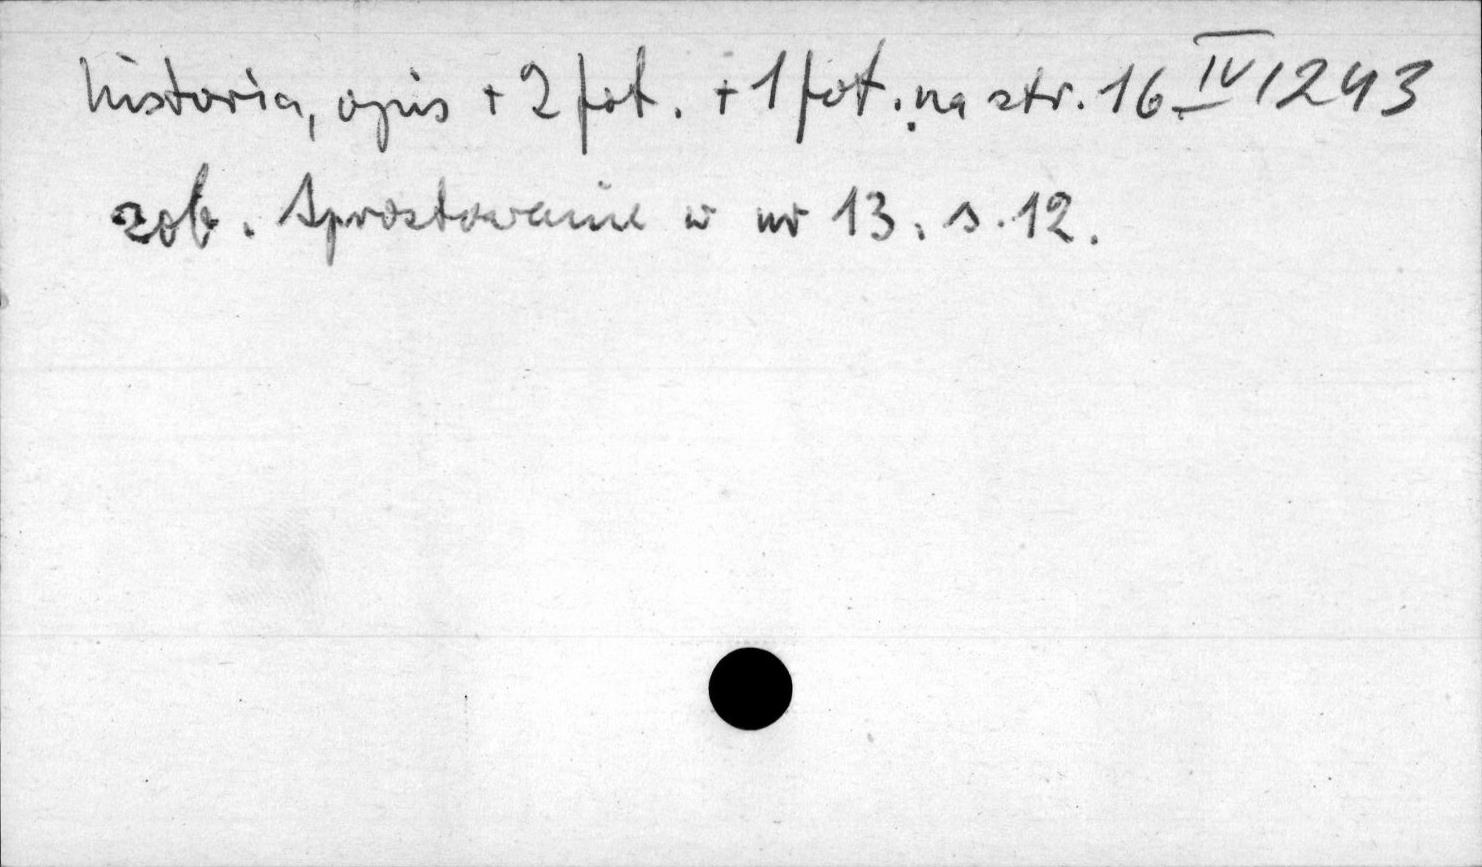 historia, opis + 2 fot. + 1 fot. na str. 16 IV 1243
zob. Sprostowanie w nr 13. s. 12.